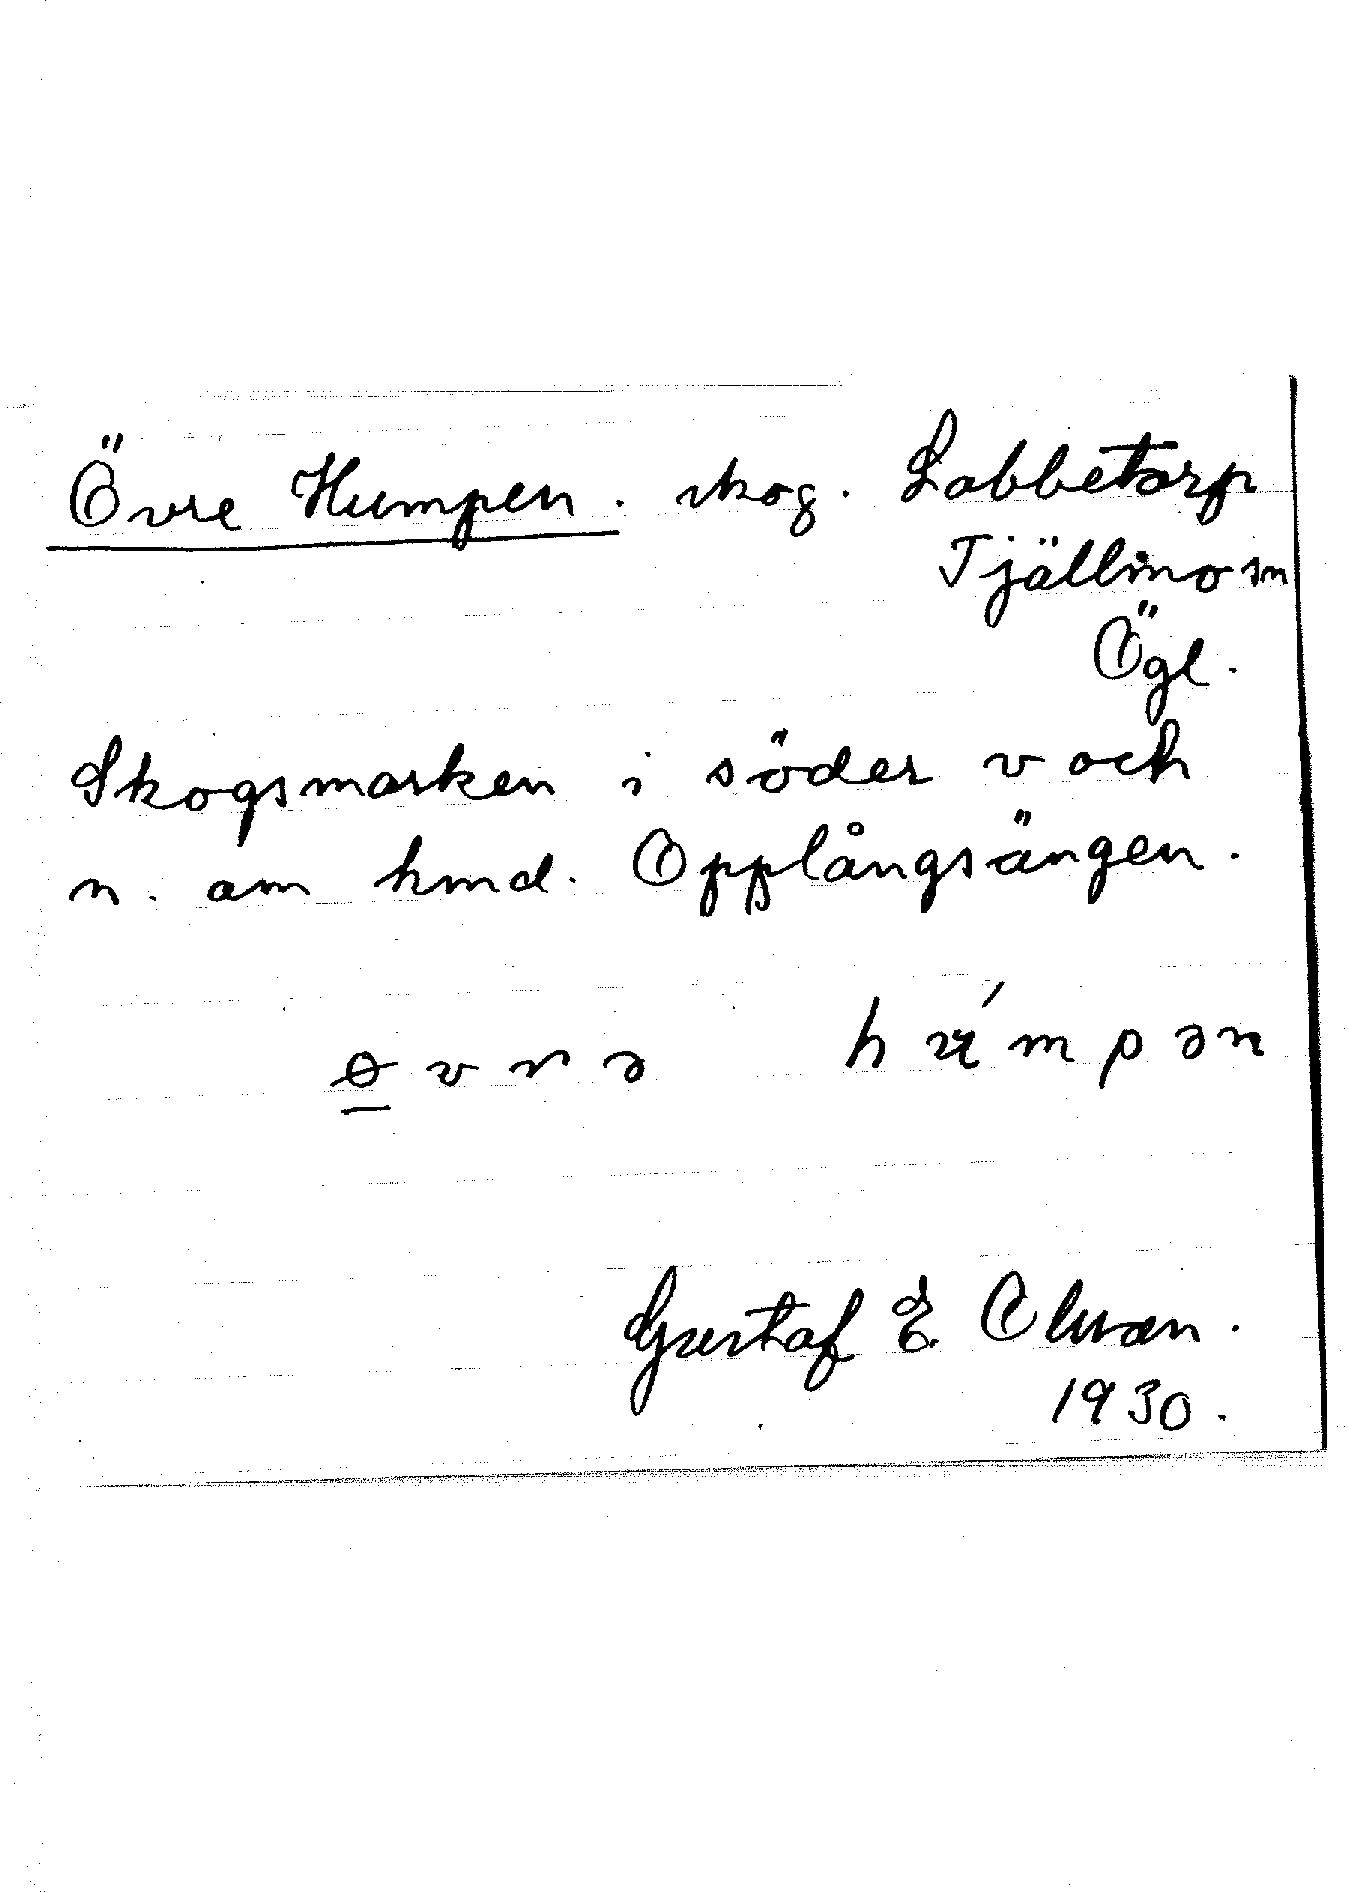 Övre Humpen. skog. Labbetorp
Tjällmo sn
Ögl.
Skogsmarken i söder v och
n. om hmd. Opplångsängen.
ɵ̲vrə húmpən
Gustaf E. Olsson.
1930.